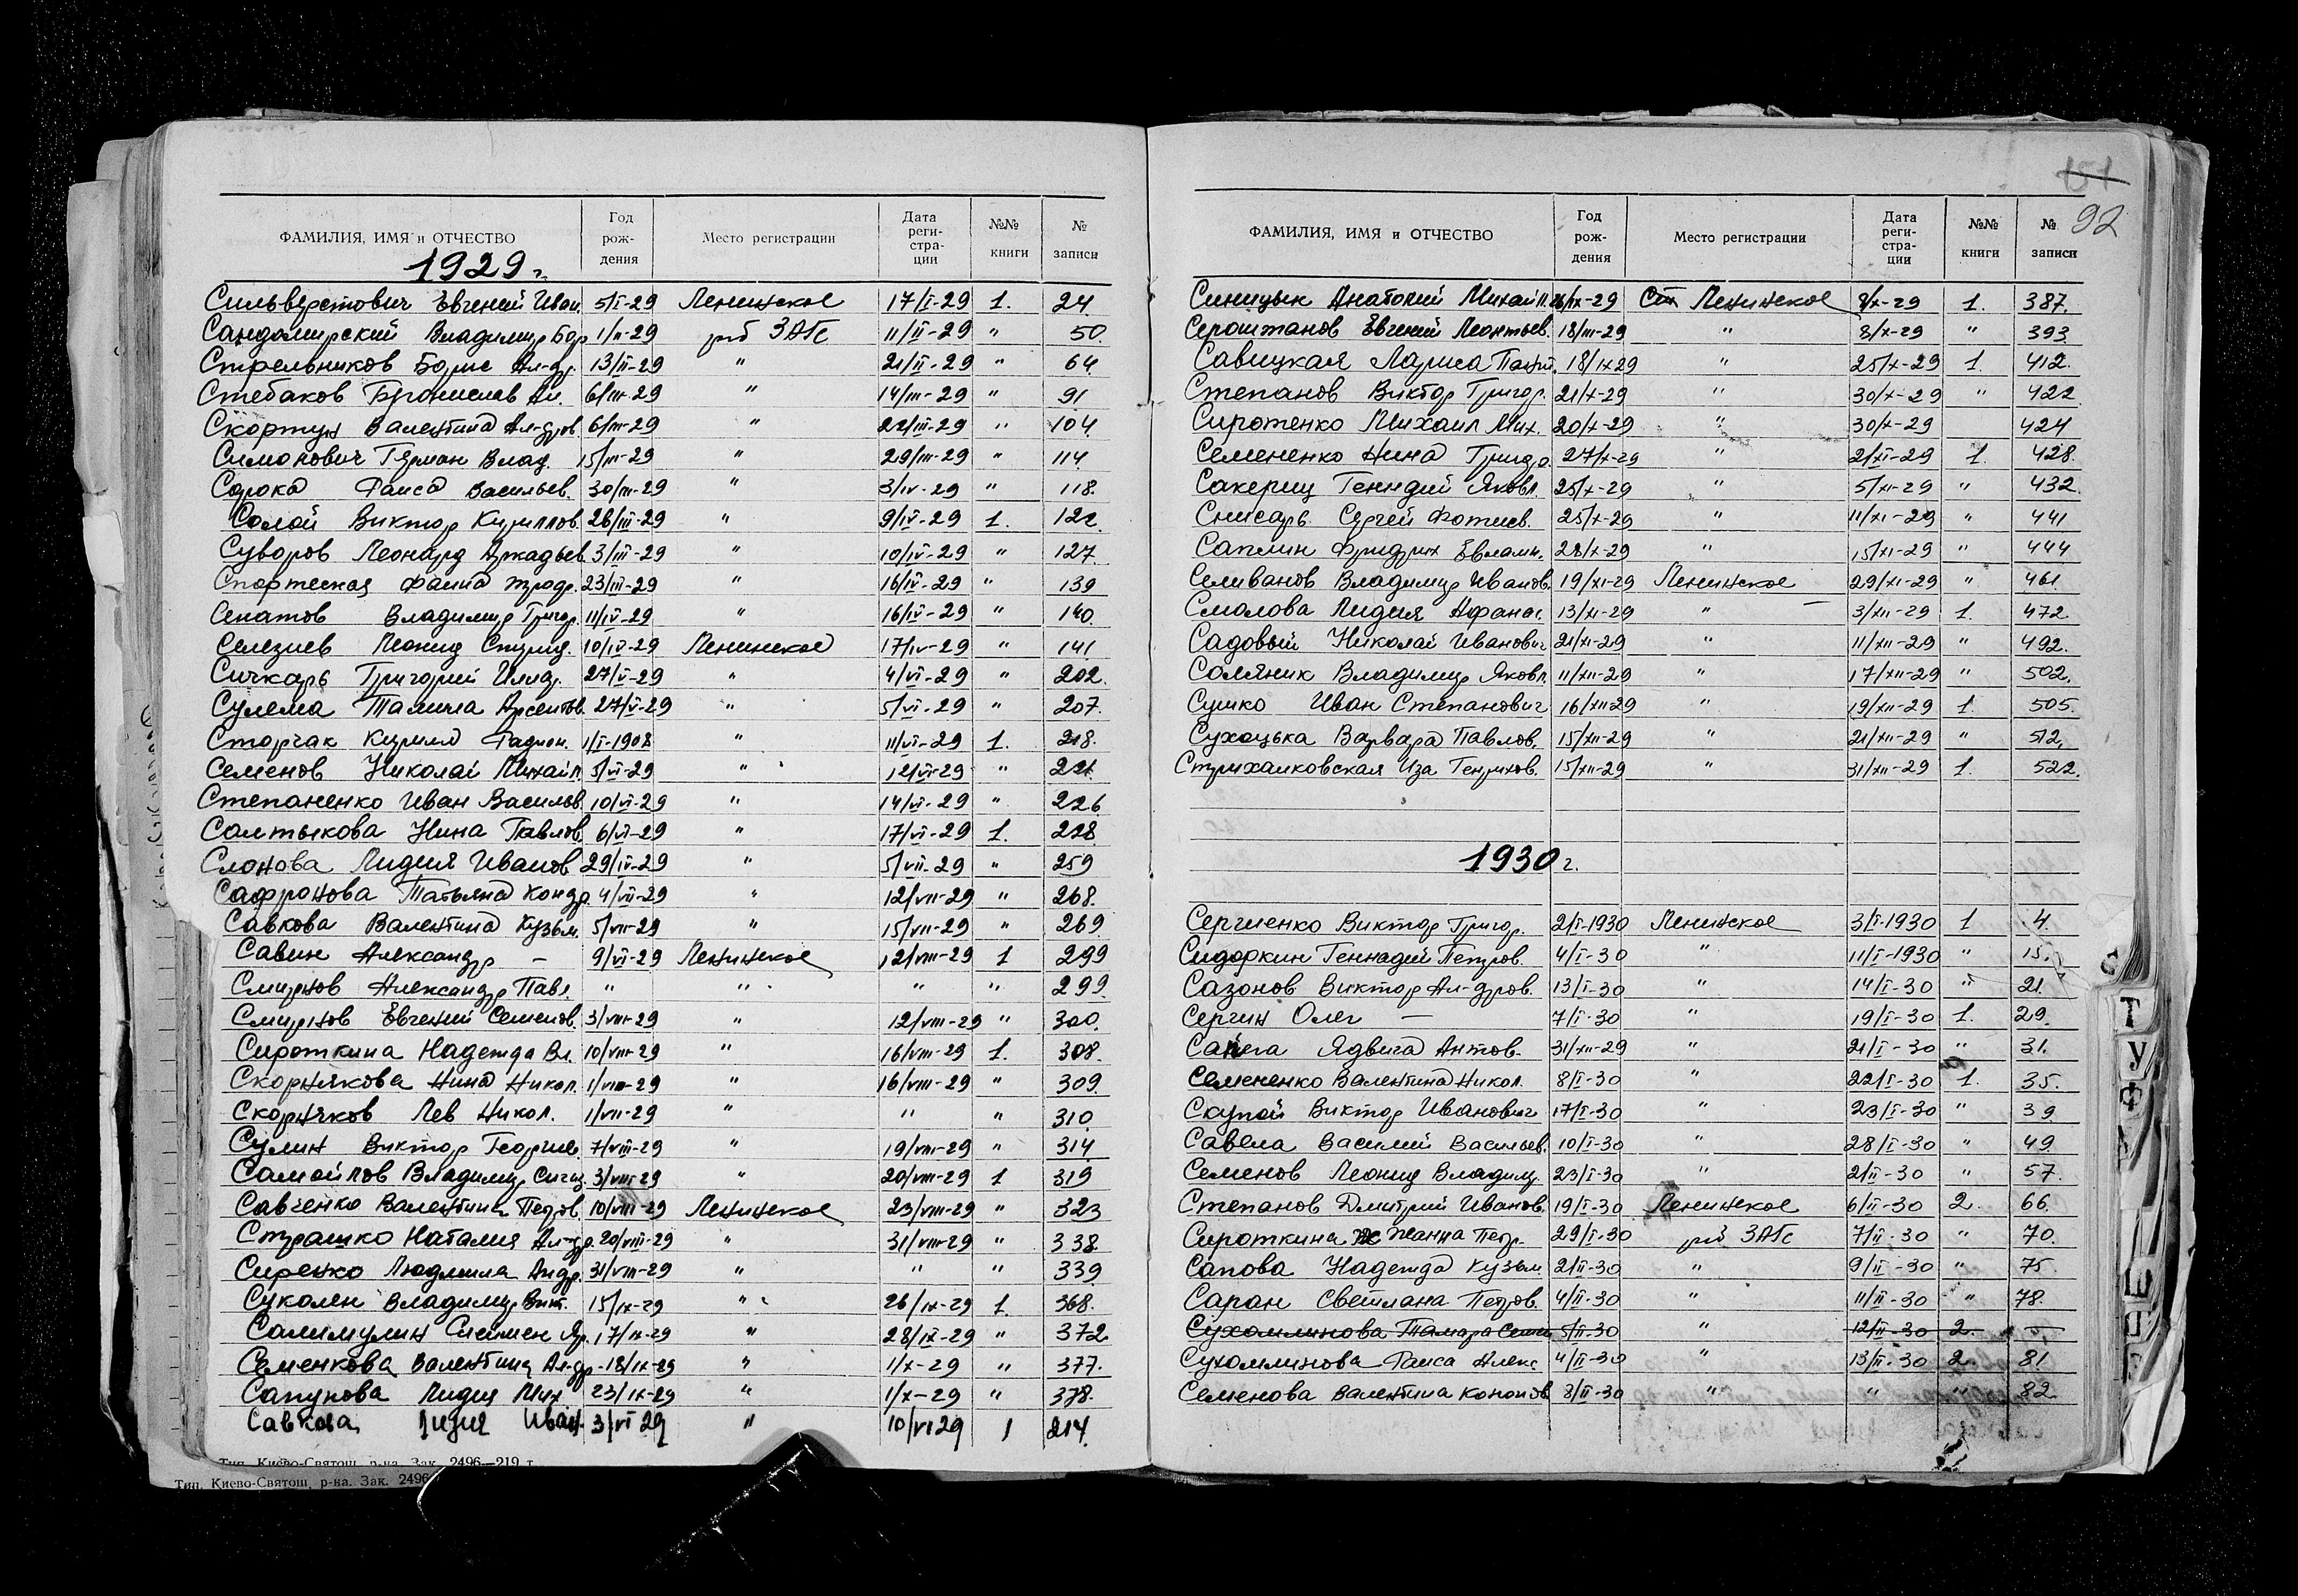 ФАМИЛИЯ, ИМЯ и ОТЧЕСТВО Год рождения Место регистрации Дата регистрации №№ книги № записи
1929 г.
Сильверстович Евгений Иван. 5/I-29 Ленинское 17/I-29 1. 24
Сандомирский Владимир Бор. 1/II-29 рб ЗАГС 11/II-29 " 50
Стрельников Борис Ал-др. 13/II-29 " 21/II-29 " 64
Стебаков Бронислав Ал. 6/III-29 " 14/III-29 " 91
Скортун Валентина Ал-дров. 6/III-29 " 22/III-29 " 104
Симонович Герман Влад. 15/III-29 " 29/III-29 " 114
Сорока Раиса Васильев. 30/III-29 " 3/IV-29 " 118.
Солой Виктор Кириллов. 26/III-29 " 9/IV-29 1. 122
Суворов Леонард Аркадьев. 3/III-29 " 10/IV-29 " 127.
23/III-29 " 16/IV-29 " 139
Сенатов Владимир Григор. 11/IV-29 " 16/IV-29 " 140.
Селезнев Леонид 10/IV-29 Ленинское 17/IV-29 " 141
Сичкарь Григорий 27/V-29 " 4/VI-29 " 202.
Сулема Тамила Арсентьев. 27/V-29 " 5/VI-29 " 207.
Сторчак Кирилл Радион. 1/I-1908 " 11/VI-29 1. 218.
Семенов Николай Михайл. 5/VI-29 " 12/VI-29 " 221.
Степаненко Иван Васильев. 10/VI-29 " 14/VI-29 " 226
Салтыкова Нина Павлов. 6/VI-29 " 17/VI-29 1. 228
Слонова Лидия Иванов 29/IV-29 " 5/VII-29 " 259
Сафронова Татьяна Кондр. 4/VII-29 " 12/VII-29 " 268.
Савкова Валентина Кузьм. 5/VII-29 " 15/VII-29 " 269
Савин Александр - 9/VI-29 Ленинское 12/VIII-29 1 299
Смирнов Александр Павл. " " " " 299.
Смирнов Евгений Семенов. 3/VIII-29 " 12/VIII-29 " 300.
Сироткина Надежда Вл. 10/VIII-29 " 16/VIII-29 1. 308.
Скорнякова Нина Никол. 1/VIII-29 " 16/VIII-29 " 309.
Скорняков Лев Никол. 1/VII-29 " " " 310
Сулин Виктор Георгиев. 7/VIII-29 " 19/VIII-29 " 314
Самойлов Владимир 3/VIII-29 " 20/VIII-29 1 319
Савченко Валентина Петров. 10/VIII-29 Ленинское 23/VIII-29 " 323
Страшко Наталия Ал-др. 20/VIII-29 " 31/VIII-29 " 338.
Сиренко Людмила Андр. 31/VIII-29 " " " 339
Суколен Владимир Викт. 15/IX-29 " 26/IX-29 1. 368.
Салимулин 17/IX-29 " 28/IX-29 " 372
Семенкова Валентина Ал-др. 18/IX-29 " 1/X-29 " 377.
Сапунова Лидия Мих. 23/IX-29 " 1/X-29 " 378.
Савкова Лидия Иван. 3/VI 29 " 10/VI 29 1 214.
Тип. Киево-Святош. р-на. Зак. 2496—219 г.
Тип. Киево-Святош. р-на. Зак. 2496
151
92
ФАМИЛИЯ, ИМЯ и ОТЧЕСТВО Год рождения Место регистрации Дата регистрации №№ книги № записи
Синицык Анатолий Михайл. 26/IX-29 Ленинское 8/X-29 1. 387.
Сероштанов Евгений Леонтьев. 18/III-29 " 8/X-29 " 393
Савицкая Лариса 18/IX29 " 25/X-29 1. 412.
Степанов Виктор Григор. 21/X-29 " 30/X-29 " 422
Сиротенко Михаил Мих. 20/X-29 " 30/X-29 424
Семененко Нина Григор. 27/X-29 " 2/XI-29 1. 428.
Сакериц Генидий Яковл. 25/X-29 " 5/XI-29 " 432.
Снисарь Сергей Фотиев. 25/X-29 " 11/XI-29 " 441
Саплин Фридрих Евламп. 28/X-29 " 15/XI-29 " 444
Селиванов Владимир Иванов. 19/XI-29 Ленинское 29/XI-29 " 461.
Смолова Лидия Афанас. 13/XI-29 " 3/XII-29 1. 472.
Садовый Николай Иванович 21/XI-29 " 11/XII-29 " 492.
Соляник Владимир Яковл. 11/XII-29 " 17/XII-29 " 502.
Сушко Иван Степанович 16/XII29 " 19/XII-29 1. 505.
Сухоцька Варвара Павлов. 15/XII-29 " 21/XII-29 " 512.
Стрихалковская Иза Генрихов. 15/XII-29 " 31/XII-29 1. 522.
1930 г.
Сергиенко Виктор Григор. 2/I-1930 Ленинское 3/I-1930 1 4.
Сидоркин Геннадий Петров. 4/I-30 " 11/I-1930 " 15.
Сазонов Виктор Ал-дров. 13/I-30 " 14/I-30 " 21.
Сергин Олег — 7/I-30 " 19/I-30 1. 29.
Сапега Ядвига Антов. 31/XII-29 " 21/I-30 " 31.
Семененко Валентина Никол. 8/I-30 " 22/I-30 1. 35.
Скупой Виктор Иванович 17/I-30 " 23/I-30 " 39.
Савела Василий Васильев. 10/I-30 " 28/I-30 " 49.
Семенов Леонид Владимир. 23/I-30 " 2/II-30 " 57.
Степанов Дмитрий Иванов. 19/I-30 Ленинское 6/II-30 2. 66.
Сироткина Жанна Петр. 29/I-30 рб ЗАГС 7/II-30 " 70.
Сапова Надежда Кузьм. 2/II-30 " 9/II-30 " 75.
Саран Светлана Петров. 4/II-30 " 11/II-30 " 78.
Сухомлинова Тамара Семен 5/II-30 " 12/II-30 2.
Сухомлинова Раиса Алекс 4/II-30 " 13/II-30 2. 81
Семенова Валентина Кононов. 8/II-30 " " " 82
С
Т
У
Ф
Ш